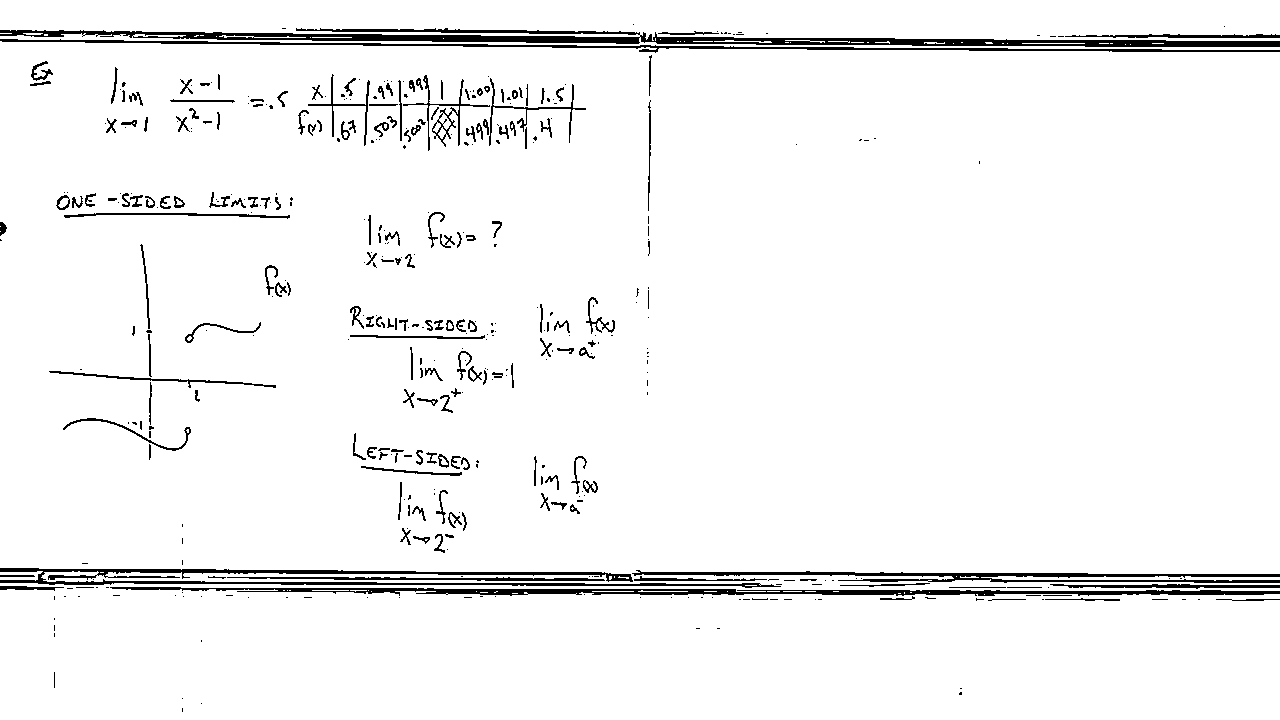 Ex
lim x→1 (x-1)/(x²-1) = .5
x | .5 | .99 | .999 | 1 | 1.001 | 1.01 | 1.5
f(x) | .67 | .503 | .5002 | | .499 | .497 | .4
ONE-SIDED LIMITS:
lim x→2 f(x) = ?
f(x)
1
2
-1
RIGHT-SIDED: lim x→a⁺ f(x)
lim x→2⁺ f(x) = 1
LEFT-SIDED: lim x→a⁻ f(x)
lim x→2⁻ f(x)